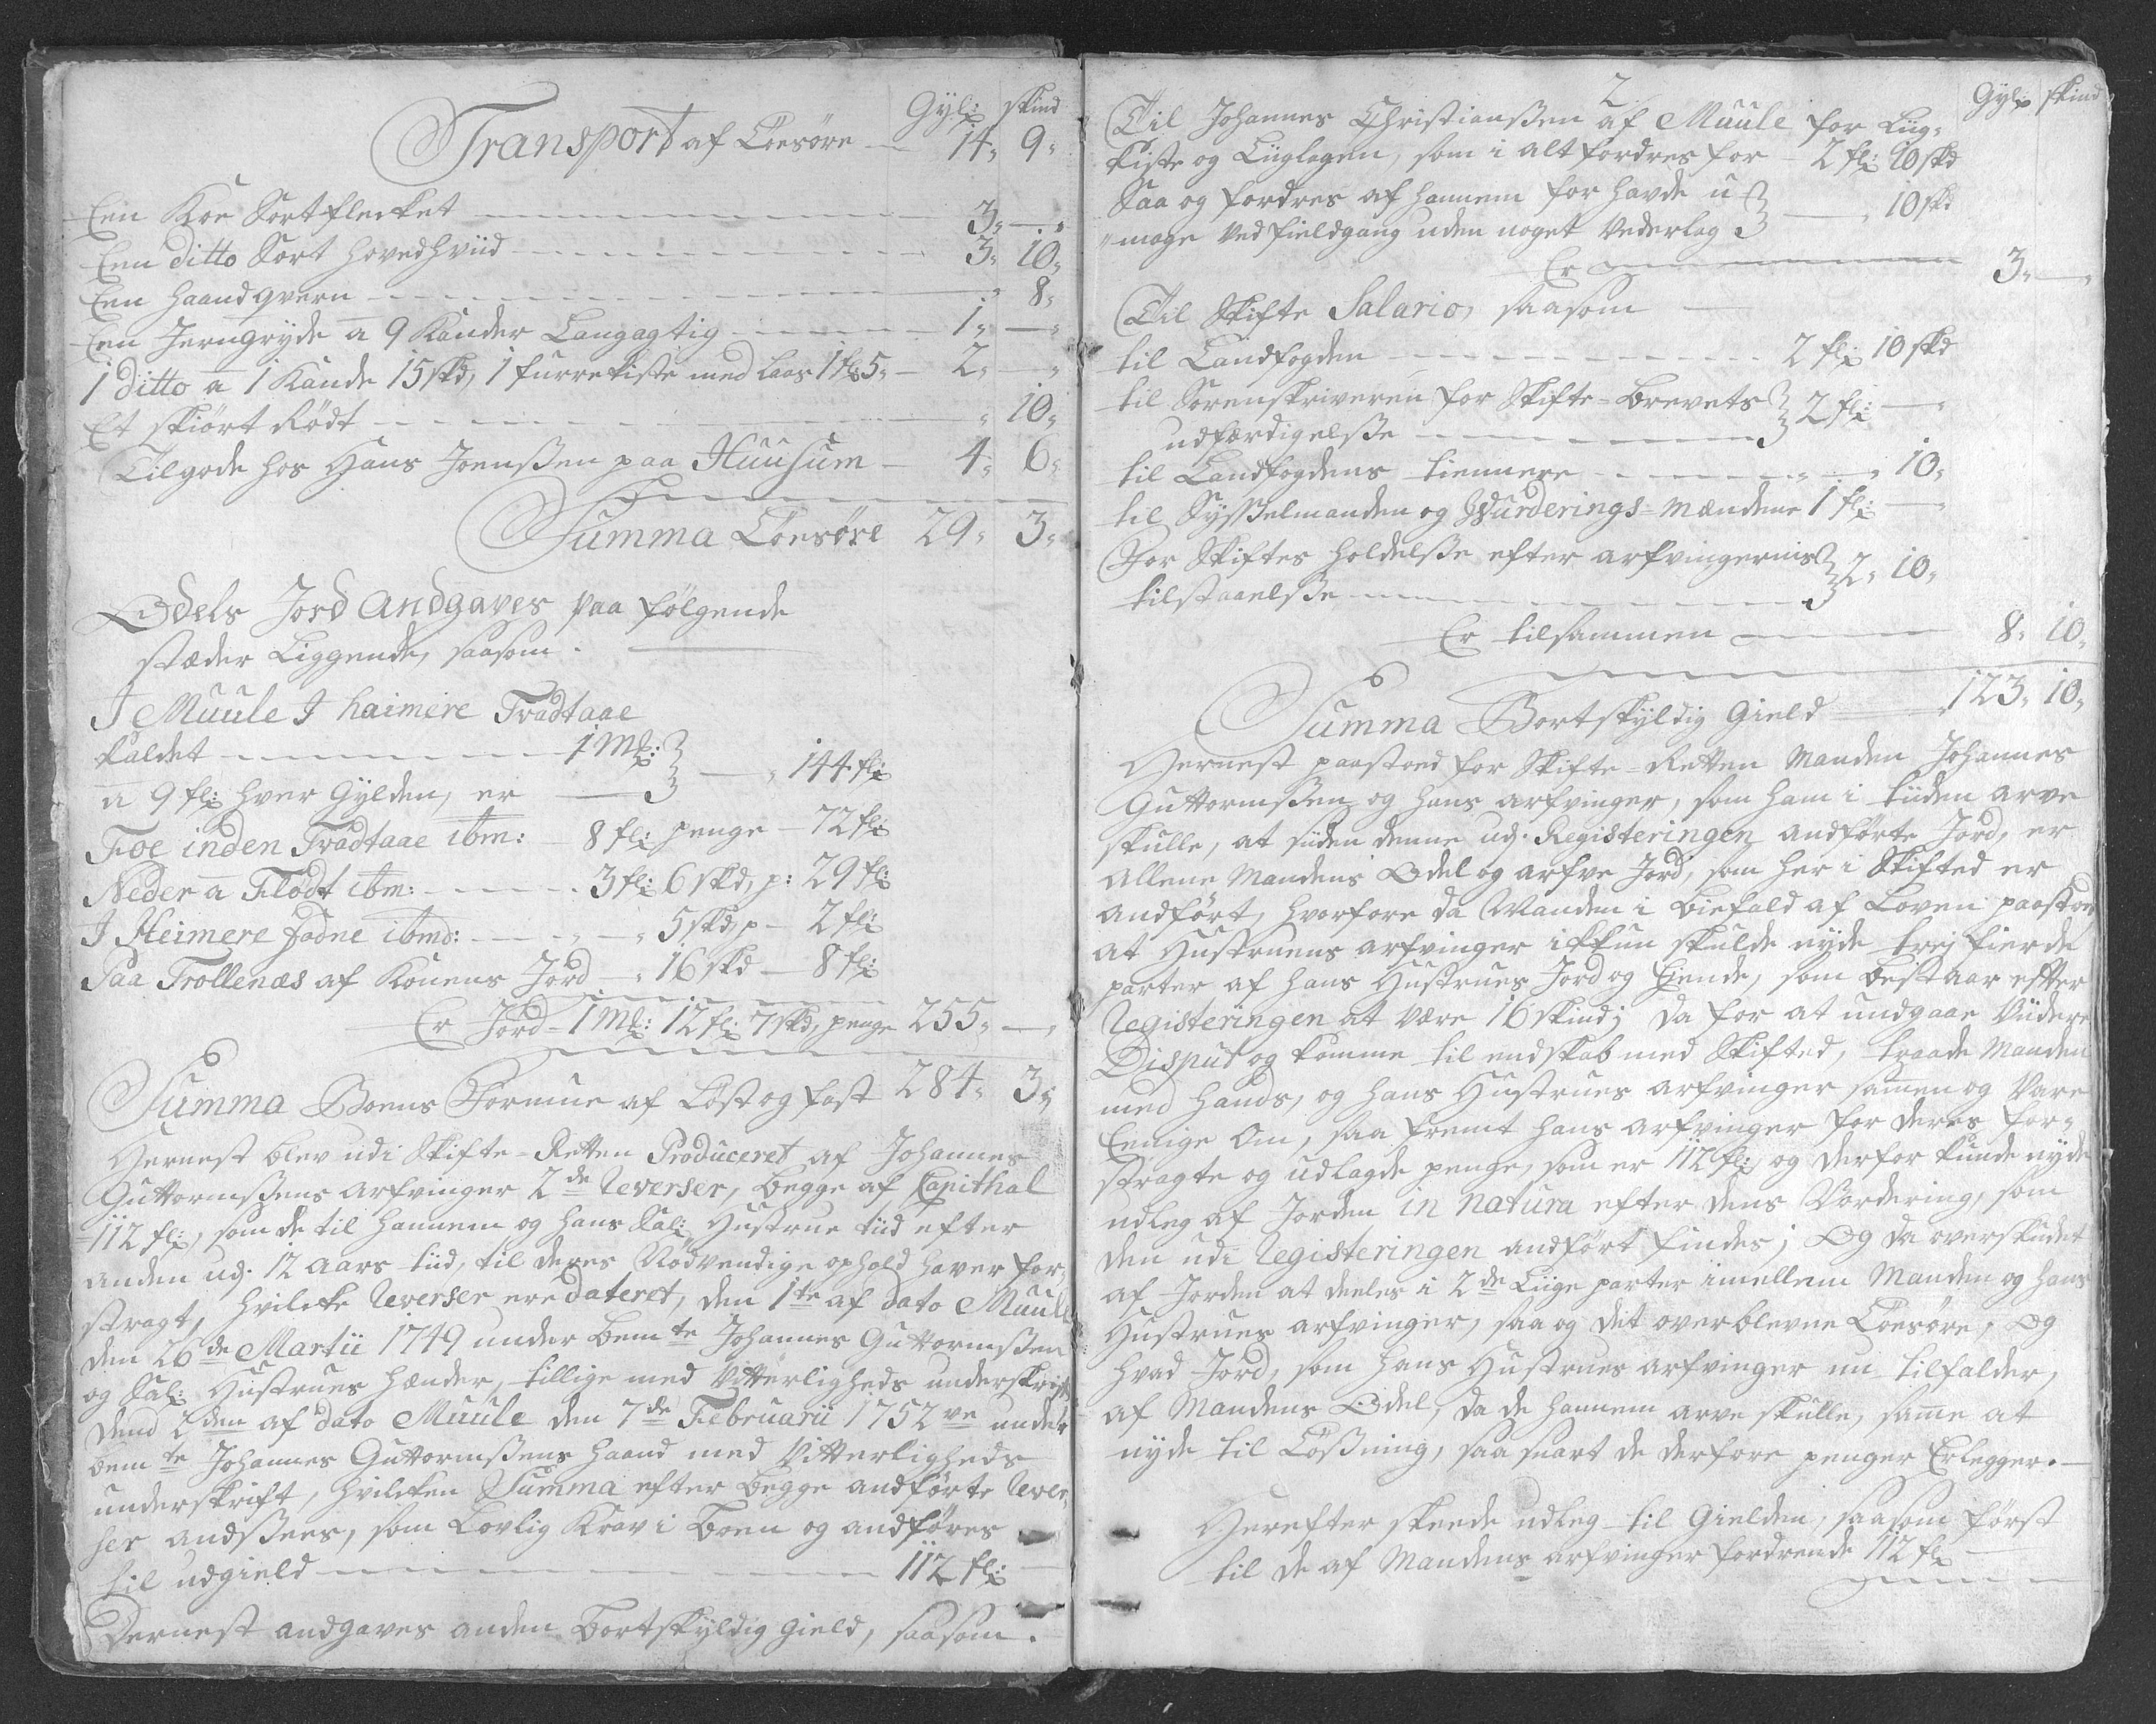 Gyl: skind
Transport af Löesöre — 14" 9"
Een Koe Sortflecket — 3" — "
Een ditto Sort hovedhviid — 3" 10"
Een haandqvern — " 8"
Een Jerngryde a 9 Kander Langagtig — 1" — "
1 ditto a 1 Kande 15 skd, 1 furrekiste med laas 1 fl: 5" — 2" — "
Et skiört Rödt — " 10"
Tilgode hos Hans Joenssen paa Huusum — 4" 6"
Summa Löesöre 29" 3"
Odels Jord andgaves paa følgende
stæder Liggende, saasom.
I Muule I haimere Tradtaae
kaldet — 1 Mk:
a 9 fl: hver Gylden, er — " 144 fl:
Foe inden Tradtaae ibm: — 8 fl: penge — 72 fl:
Neder a Flödt ibm: — 3 fl: 6 skd, p: 29 fl:
I Heimere Jadne ibmd: — " — " 5 skd, p — 2 fl:
Paa Trollenæs af Konens Jord — " 16 skd — 8 fl:
Er Jord — 1 Mk: 12 fl: 7 skd, penge 255" — "
Summa Boens Formue af Löst og fast 284" 3"
Hernest blev udi Skifte-Retten Produceret af Johannes
Guttormssens arfvinger 2de Reverser, begge af Capithal
112 fl:, som de til hannem og hans Sal: Hustrue tiid efter
anden udj 12 aars tiid, til deres Nödvendige ophold haver for,
stragt, hvilcke Reverser ere dateret, den 1te af dato Muule
den 26de Martii 1749 under bemte Johannes Guttormssen
og Sal: Hustrues hænder, tillige med Vitterligheds underskrift,
dend 2den af dato Muule den 7de Februarii 1752ve under
bemte Johannes Guttormssens haand med Vitterligheds
underskrift, hvilcken Summa efter begge andförte Rever,
ser andssees, som Lovlig Krav i boen og andföres
til udgield — 112 fl: —
Dernest andgaves anden bortskyldig gield, saasom.
2
Gyl: skind
Til Johannes Christianssen af Muule for Liig-
kiste og Liiglagen, som i alt fordres for — 2 fl: 10 skd
Saa og fordres af hannem for havde u
"mage ved fieldgang uden noget Vederlag — " 10 skd
Er — 3" — "
Til Skifte Salario, saasom
til Landfogden — 2 fl: 10 skd
til Sorenskriveren for Skifte-brevets
udfærdigelsse — 2 fl: — "
til Landfogdens tiennere — " 10"
til Sysselmanden og Wurderings-Mændene 1 fl: — "
For Skiftes holdelsse efter arfvingernis
tilstaaelsse — 2" 10"
Er tilsammen — 8" 10"
Summa Bortskyldig Gield — 123" 10"
Hernest paastoed for Skifte-Retten Manden Johannes
Guttormssen og hans arfvinger, som ham i tiiden arve
skulle, at siiden denne udj Registeringen andförte Jord, er
allene Mandens Odel og arfve Jord, som her i Skifted er
andfört, hvorfore da Manden i biefald af Loven paastod,
at Hustruens arfvinger ikkun skulde nyde trej fierde
parter af hans Hustrues Jord og Eiende, som bestaar efter
Registeringen at være 16 skind; da for at undgaae Viidere
Disput og komme til endskab med Skifted, traade Manden
med hands, og hans Hustrues arfvinger samen og Vare
Eenige Om, saa fremt hans arfvinger for deres for,
stragte og udlagde penge, som er 112 fl: og derfor kunde nyde
udleg af Jorden in natura efter dens Vordering, som
den udi Registeringen andfört findes; Og da overskudet
af Jorden at deeles i 2de Liige parter imellem Manden og hans
Hustrues arfvinger, saa og det overblevne Löesöre, og
hvad Jord, som hans Hustrues arfvinger nu tilfalder,
af Mandens Odel, da de hannem arve skulle, same at
nyde til Lössning, saa snart de derfore penger Erlegger.
Herefter skeede udleg til Gielden, saasom först
til de af Mandens arfvinger fordrende 112 fl: